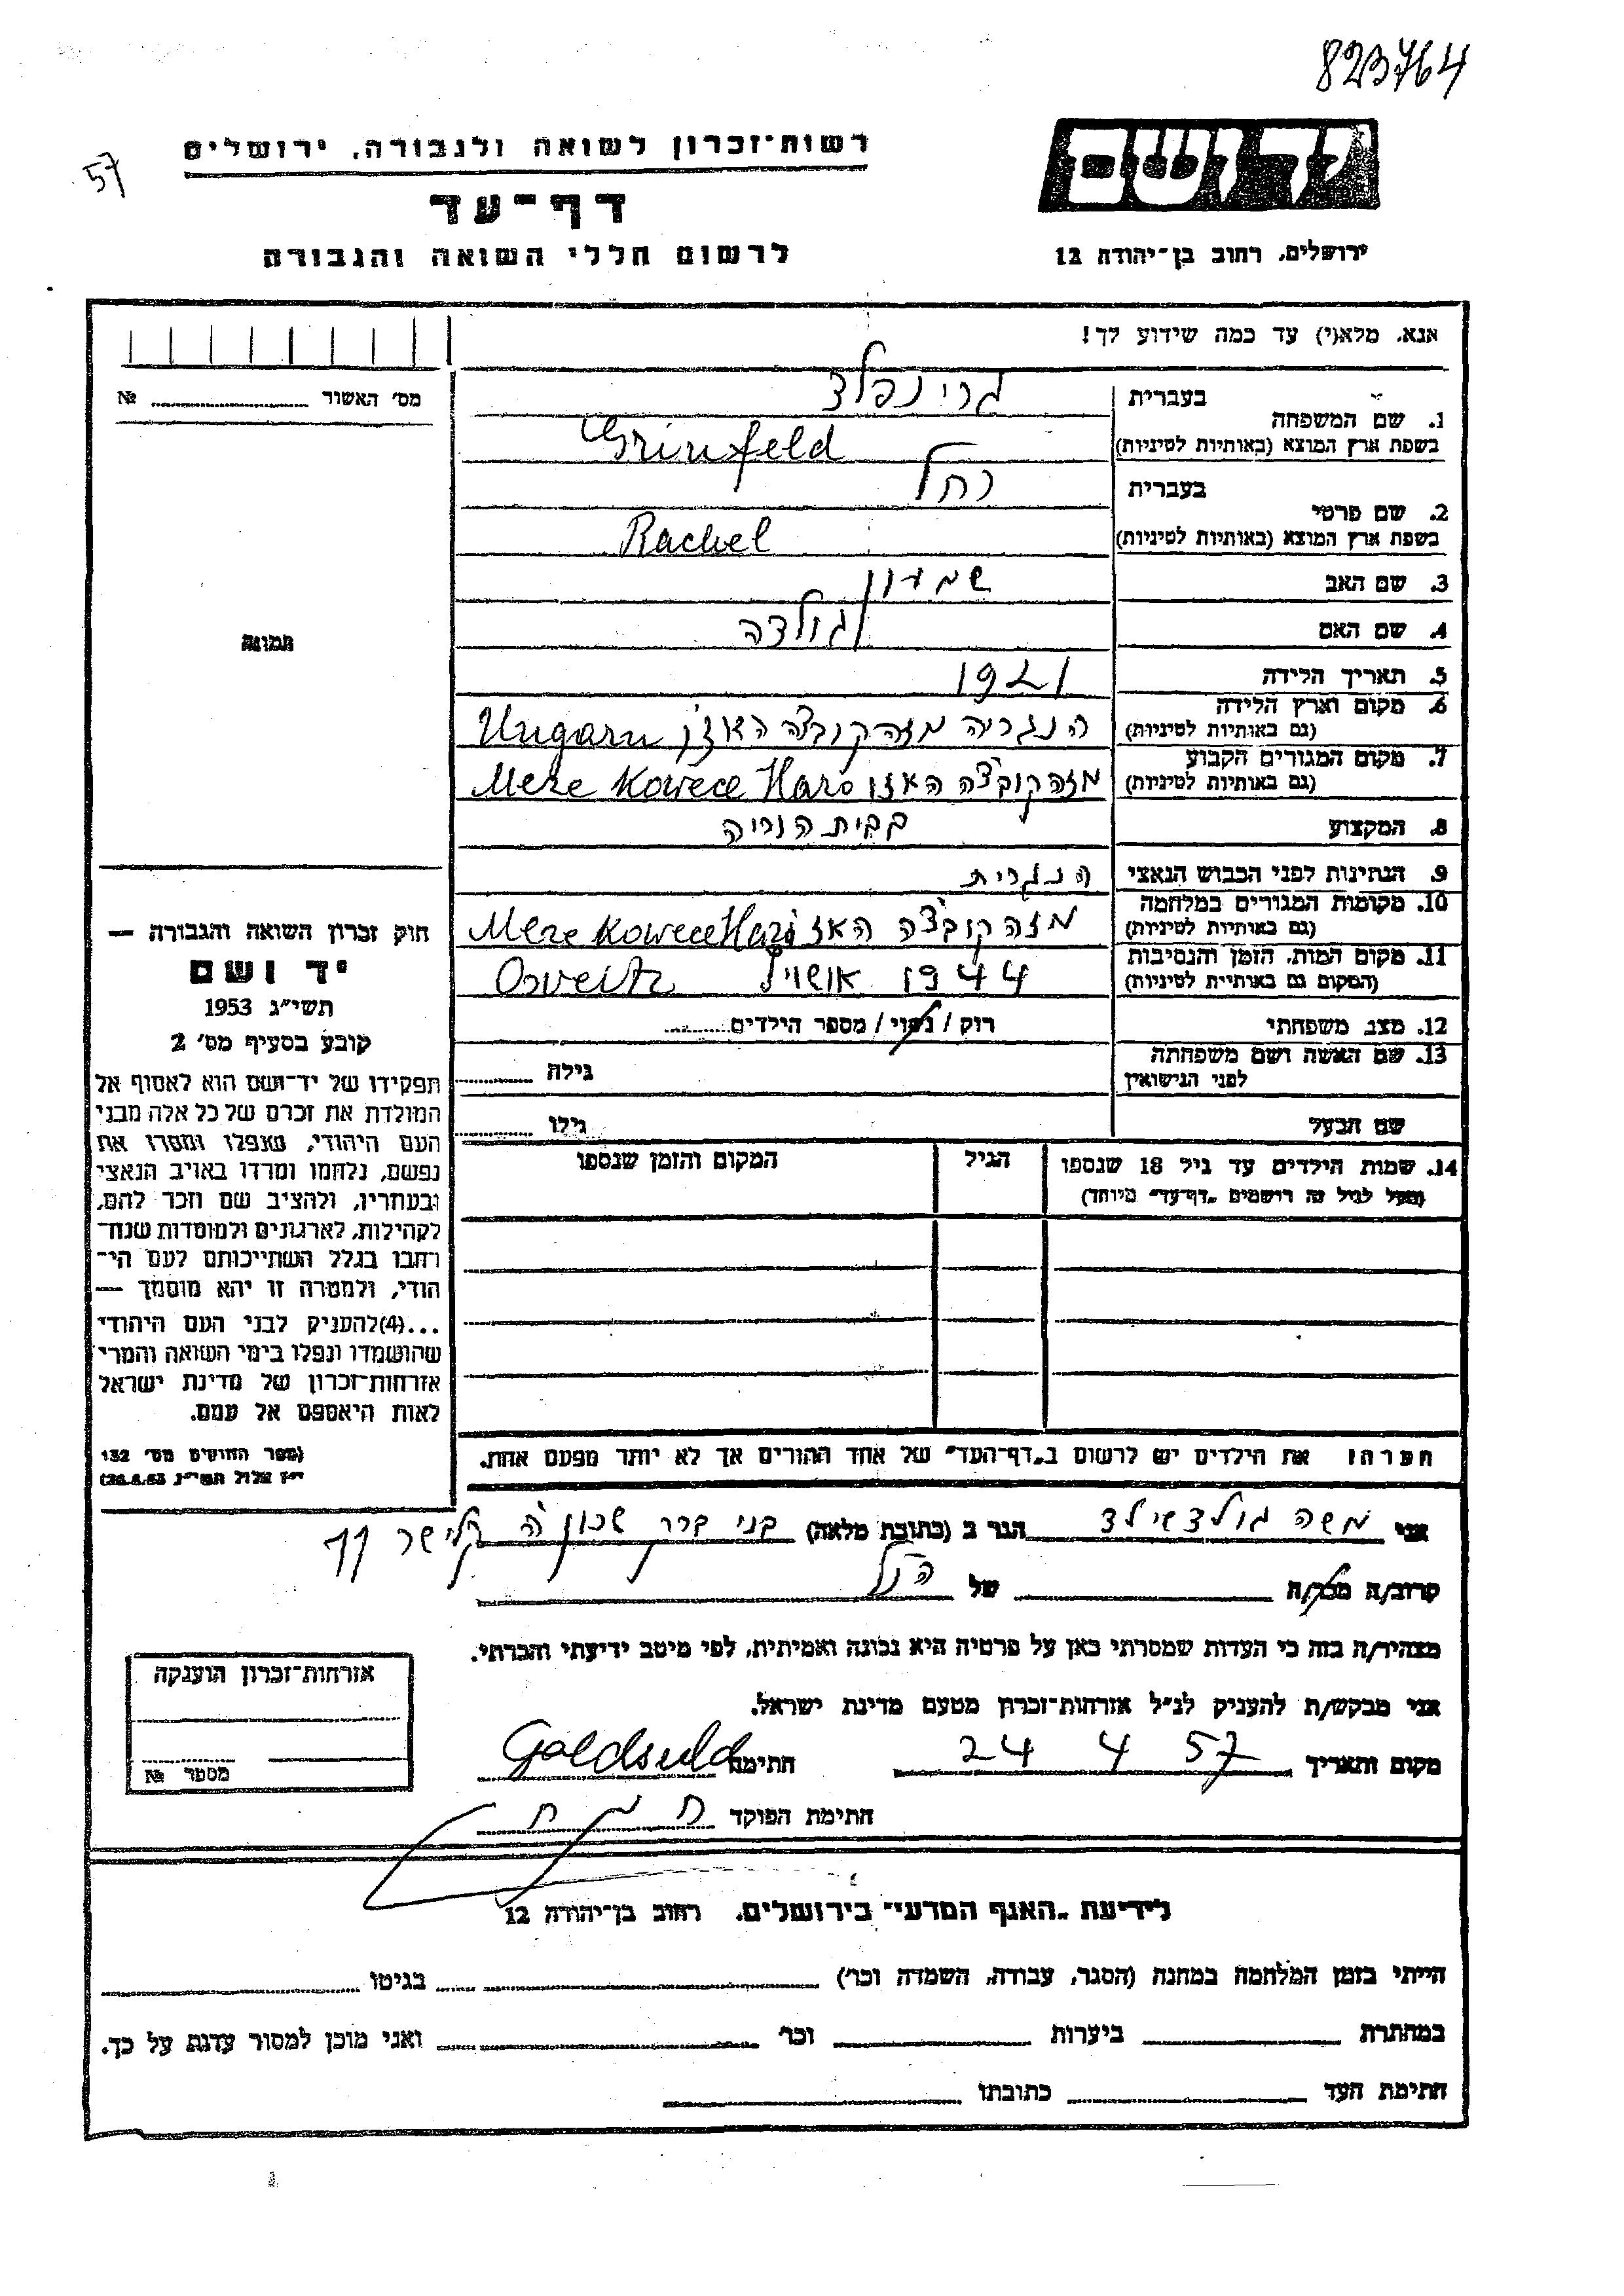 823764
57
רשות־זכרון לשואה ולגבורה, ירושלים
יד ושם
דף־עד
לרשום חללי השואה והגבורה
ירושלים, רחוב בן־יהודה 12
אנא, מלא(י) עד כמה שידוע לך!
מס׳ האשור № ........
בעברית
גרינפלד
1. שם המשפחה
בשפת ארץ המוצא (באותיות לטיניות)
Grinfeld
בעברית
רחל
2. שם פרטי
בשפת ארץ המוצא (באותיות לטיניות)
Rachel
3. שם האב
שמעון
4. שם האם
גולדה
תמונה
5. תאריך הלידה
1921
6. מקום וארץ הלידה
(גם באותיות לטיניות)
הנגריה מזהקובצה Ungarn
7. מקום המגורים הקבוע
(גם באותיות לטיניות)
מזהקובצה Meze Kowece Hazo
8. המקצוע
בבית הוריה
9. הנתינות לפני הכבוש הנאצי
הנגרית
10. מקומות המגורים במלחמה
(גם באותיות לטיניות)
מזהקובצה האז Meze Kowece Hazo
11. מקום המות, הזמן והנסיבות
(המקום גם באותיות לטיניות)
1944 Osveitz
12. מצב משפחתי
רוק / נשוי / מספר הילדים........
13. שם האשה ושם משפחתה
לפני הנישואין
גילה ........
שם הבעל
גילו ........
14. שמות הילדים עד גיל 18 שנספו
(מעל לגיל זה רושמים „דף־עד" מיוחד)
הגיל
המקום והזמן שנספו
חוק זכרון השואה והגבורה —
יד ושם
תשי״ג 1953
קובע בסעיף מס׳ 2
תפקידו של יד־ושם הוא לאסוף אל
המולדת את זכרם של כל אלה מבני
העם היהודי, שנפלו ומסרו את
נפשם, נלחמו ומרדו באויב הנאצי
ובעוזריו, ולהציב שם וזכר להם,
לקהילות, לארגונים ולמוסדות שנח־
רחבו בגלל השתייכותם לעם הי־
הודי, ולמטרה זו יהא מוסמך —
...(4)להעניק לבני העם היהודי
שהושמדו ונפלו בימי השואה והמרי
אזרחות־זכרון של מדינת ישראל
לאות היאספם אל עמם.
(ספר החוקים מס׳ 132
י״ז אלול תשי״ג 28.8.53)
הערה: את הילדים יש לרשום ב„דף־העד" של אחד ההורים אך לא יותר מפעם אחת.
אני משה גולדשילד הגר ב (כתובת מלאה) בני ברק שכון ה׳
קרוב/ה מכר/ה של הנ״ל
מצהיר/ה בזה כי העדות שמסרתי כאן על פרטיה היא נכונה ואמיתית, לפי מיטב ידיעתי והכרתי.
אני מבקש/ת להעניק לנ״ל אזרחות־זכרון מטעם מדינת ישראל.
מקום ותאריך 24 4 57 חתימה
חתימת הפוקד
אזרחות־זכרון הוענקה
מספר №
לידיעת „האגף המדעי" בירושלים, רחוב בן־יהודה 12
הייתי בזמן המלחמה במחנה (הסגר, עבודה, השמדה וכו׳) ........ בגיטו ........
במחתרת ........ ביערות ........ וכו׳ ........ ואני מוכן למסור עדות על כך.
חתימת העד ........ כתובתו ........